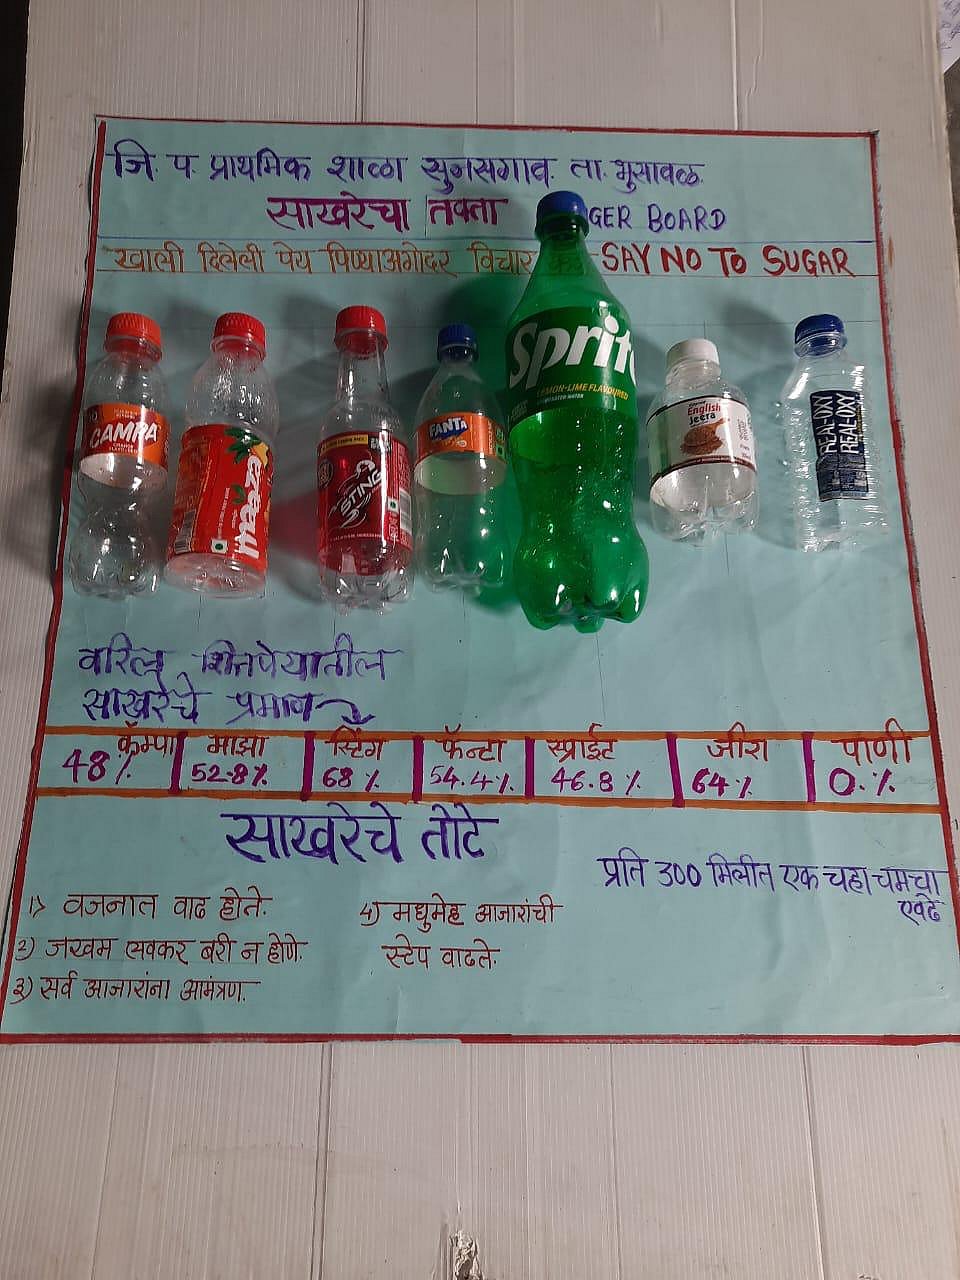 जि. प. प्राथमिक शाळा सुनसगाव ता. भुसावळ
साखरेचा तक्ता GER BOARD
खाली दिलेली पेय पिण्याअगोदर विचार SAY NO TO SUGAR
CAMPA
ezeeay
STING
FANTA
Sprit
LEMON-LIME FLAVOURED
English
Jeera
REAL-OXY
REAL-OXY
वरिल शितपेयातील
साखरेचे प्रमाण
कॅम्पा माझा स्टिंग फॅन्टा स्प्राईट जीरा पाणी
48% 52.8% 68% 54.4% 46.8% 64% 0.%
साखरेचे तोटे
प्रति 300 मिलीत एक चहा चमचा
एवढे
1) वजनात वाढ होते.
2) जखम लवकर बरी न होणे.
3) सर्व आजारांना आमंत्रण.
4) मधुमेह आजारांची
स्टेप वाढते.